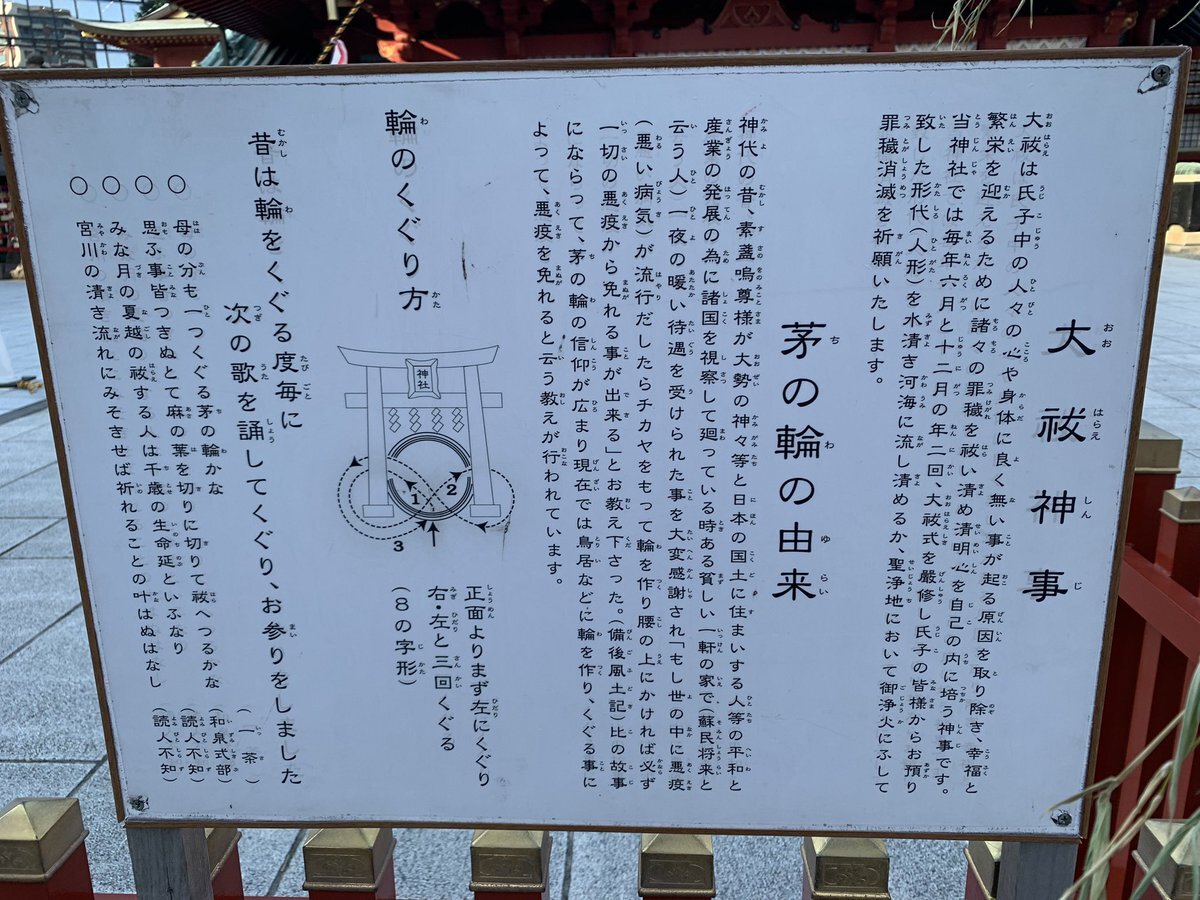 大祓神事
大祓は氏子中の人々の心や身体に良く無い事が起る原因を取り除き、幸福と
繁栄を迎えるために諸々の罪穢を祓い清め清明心を自己の内に培う神事です。
当神社では毎年六月と十二月の年二回、大祓式を厳修し氏子の皆様からお預り
致した形代(人形)を水清き河海に流し清めるか、聖浄地において御浄火にふして
罪穢消滅を祈願いたします。
茅の輪の由来
神代の昔、素盞嗚尊様が大勢の神々等と日本の国土に住まいする人等の平和と
産業の発展の為に諸国を視察して廻っている時ある貧しい一軒の家で、蘇民将来と
云う人)一夜の暖い待遇を受けられた事を大変感謝され「もし世の中に悪疫
(悪い病気)が流行だしたらチカヤをもって輪を作り腰の上にかければ必ず
一切の悪疫から免れる事が出来る」とお教え下さった。(備後風土記)比の故事
にならって、茅の輪の信仰が広まり現在では鳥居などに輪を作り、くぐる事に
よって、悪疫を免れると云う教えが行われています。
輪のくぐり方
神社
1
2
3
正面よりまず左にくぐり
右・左と三回くぐる
(8の字形)
昔は輪をくぐる度毎に
次の歌を誦してくぐり、お参りをしました
○ 母の分も一つくぐる茅の輪かな (一茶)
○ 思ふ事皆つきぬとて麻の葉を切りに切りて祓へつるかな (和泉式部)
○ みな月の夏越の祓する人は千歳の生命延といふなり (読人不知)
○ 宮川の清き流れにみそきせば祈れることの叶はぬはなし (読人不知)